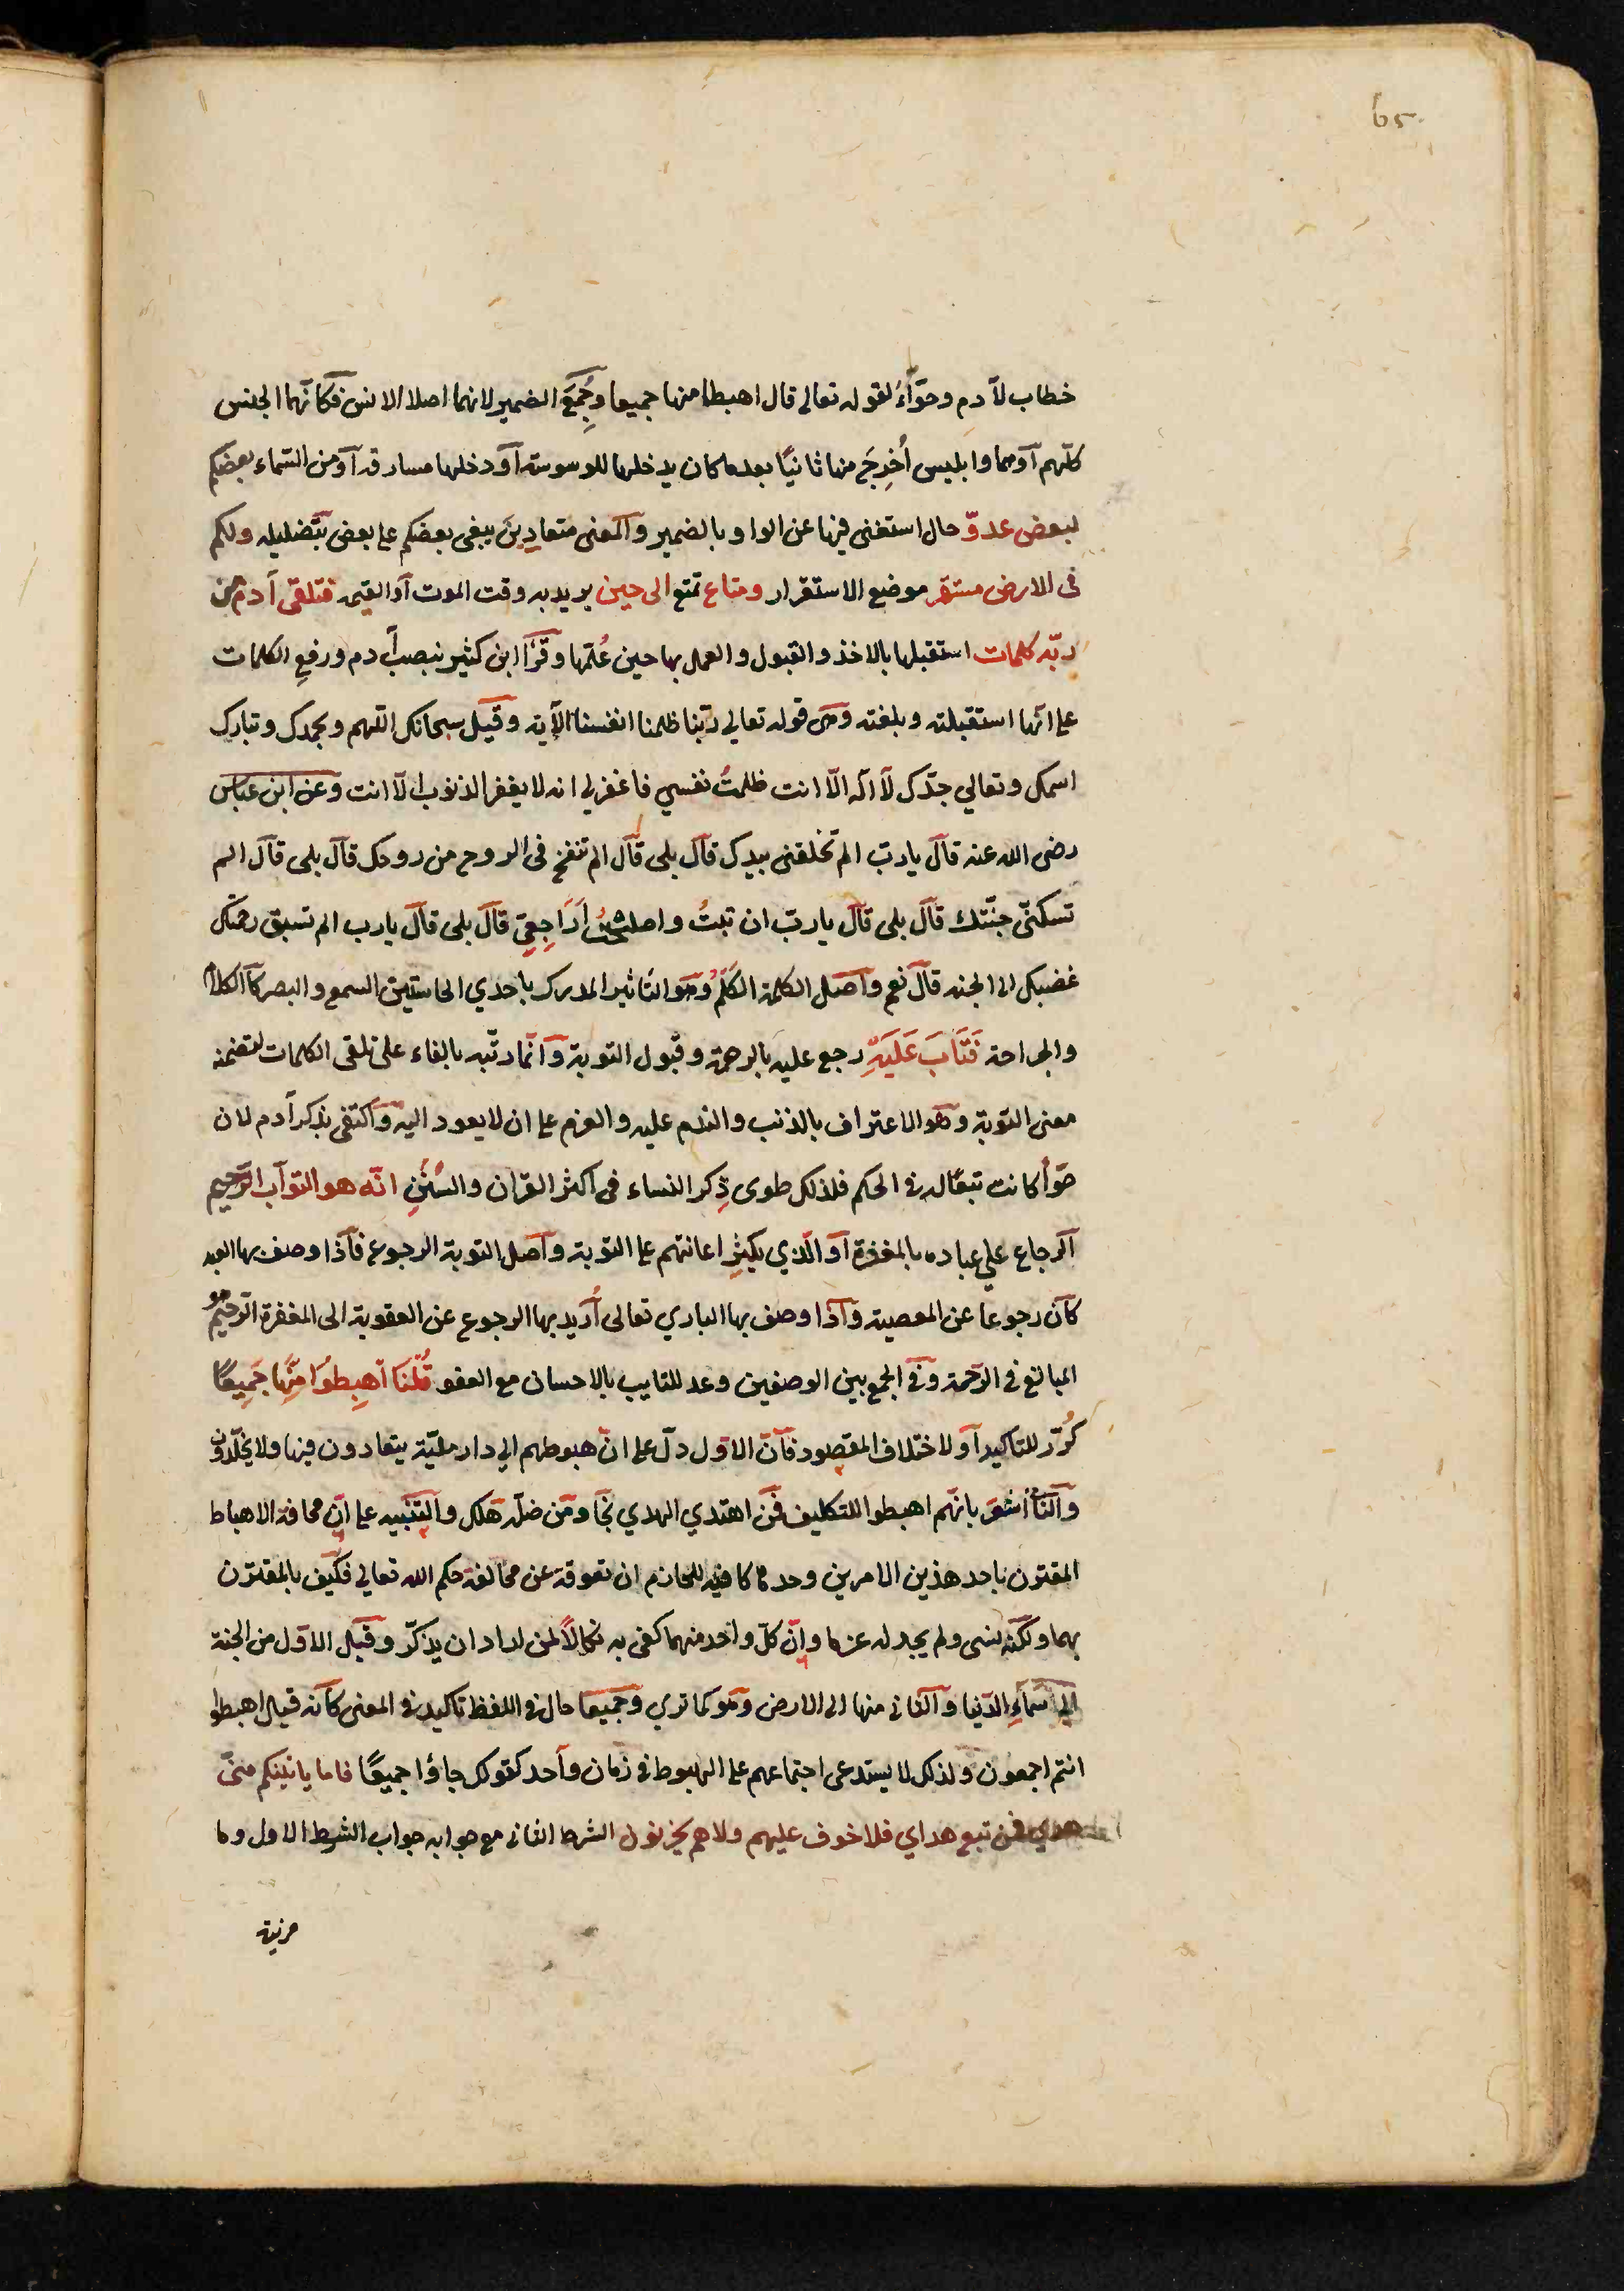 65
خطاب لآدم وحوّآءَ لقوله تعالى قال اهبطا منها جميعا وجُمِعَ الضمير لانهما اصلا الانس فكانّهما الجنس
كلّهم آوهما وابليس أُخرِجَ منها ثانيًا بعدما كان يدخلها للوسوسة آو دخلها مسارقة آو من السّماء بعضكم
لبعض عدوّ حال استغنى فيها عن الواو بالضمير والمعنى متعادِينَ يبغى بعضكم على بعض بتضليله ولكم
فى الارض مستقر موضع الاستقرار ومتاع تمتع الى حين يريد به وقت الموت آو القيمة فتلقى آدم من
ربّه كلمات استقبلها بالاخذ والقبول والعمل بها حين عُلّمها وقرَأ ابن كثير بنصب آدم ورفع الكلمات
على انّها استقبلته وبلغته وهى قوله تعالى ربّنا ظلمنا انفسنا الآية وقيل سبحانك اللهم وبحمدك وتبارك
اسمك وتعالي جدّك لا اله الّا انت ظلمتُ نفسي فاغفر لي انه لا يغفر الذنوب الّا انت وعن ابن عباس
رضى الله عنه قال يا ربّ الم تخلقنى بيدك قال بلى قال الم تنفخ فى الروح من روحك قال بلى قال الم
تسكنّى جنّتك قال بلى قال يا ربّ ان تبتُ واصلحتُ أَرَاجِعِىّ قال بلى قال يا رب الم تسبق رحمتك
غضبك الى الجنه قال نعم واصل الكلمة الكَلْمُ وهو التاثير المدرك باحدي الحاستين السمع والبصر كالكلام
والجراحة فَتَابَ عَلَيْهِ رجع عليه بالرحمة وقبول التوبة وانّما رتّبه بالفاء على تلقى الكلمات لتضمنه
معنى التوبة وهو الاعتراف بالذنب والندم عليه والعزم على ان لا يعود اليه واكتفى بذكر آدم لان
حوّأ كانت تبعًا له فى الحكم فلذلك طوى ذِكر النساء فى اكثر القرآن والسُنَنِ انّه هو التوّاب الرّحيم
الرجاع علي عباده بالمغفرة آو الّذي يكثِر اعانتهم على التوبة واصل التوبة الرجوع فاذا وصف بها العبد
كان رجوعا عن المعصية واذا وصف بها الباري تعالى أُريد بها الرجوع عن العقوبة الى المغفرة الرحيم هو
المبالغ فى الرّحمة وفى الجمع بين الوصفين وعد للتايب بالاحسان مع العفو قُلْنَا اهْبِطُوا مِنْهَا جَمِيعًا
كُرّر للتاكيد آو لاختلاف المقصود فانّ الاوّل دلّ على انّ هبوطهم الي دار بليّة يتعادون فيها ولا يخلّدون
والثانى أشعَر بانّهم اهبطوا للتكليف فمن اهتدي الهدي نجَا ومن ضلّه هلك والتنبيه على انّ مخافة الاهباط
المقترن باحد هذين الامرين وحدها كافية للحازم ان تعوقه عن مخالفة حكم الله تعالي فكيف بالمقترن
بهما ولكنّه نسى ولم يجد له عزما وانّ كلّ واحد منهما كفى به نكالًا لمن اراد ان يذكّر وقيل الاوّل من الجنة
الي السّماءِ الدّنيا والثانى منها الى الارض وهو كما تري وجميعا حال فى اللفظ تاكيد فى المعنى كانه قيل اهبطوا
انتم اجمعون ولذلك لا يستدعى اجتماعهم على الهبوط فى زمان واحد كقولك جاؤا جميعًا فاما ياتينكم منّى
هدي فمن تبع هداي فلا خوف عليهم ولا هم يحزنون الشرط الثانى مع جوابه جواب الشرط الاول وما
مزيدة